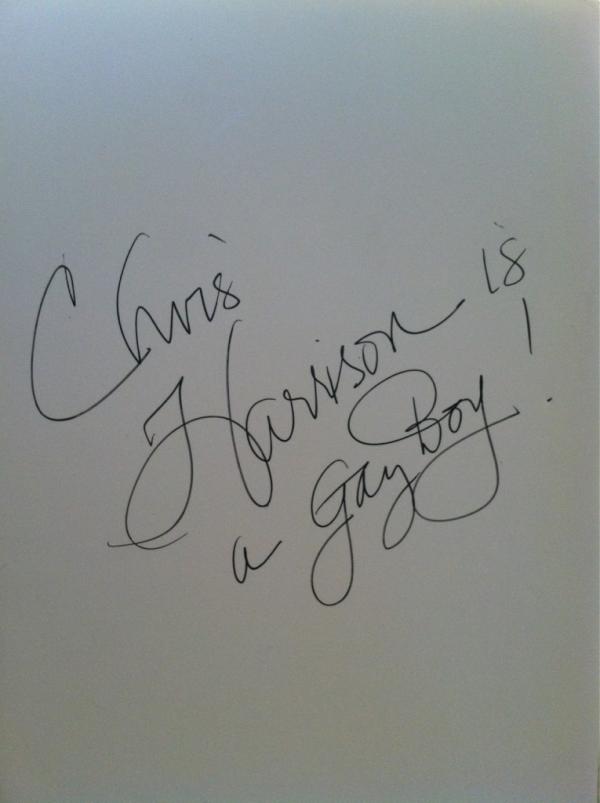 Chris
Harrison is
a Gay Boy!